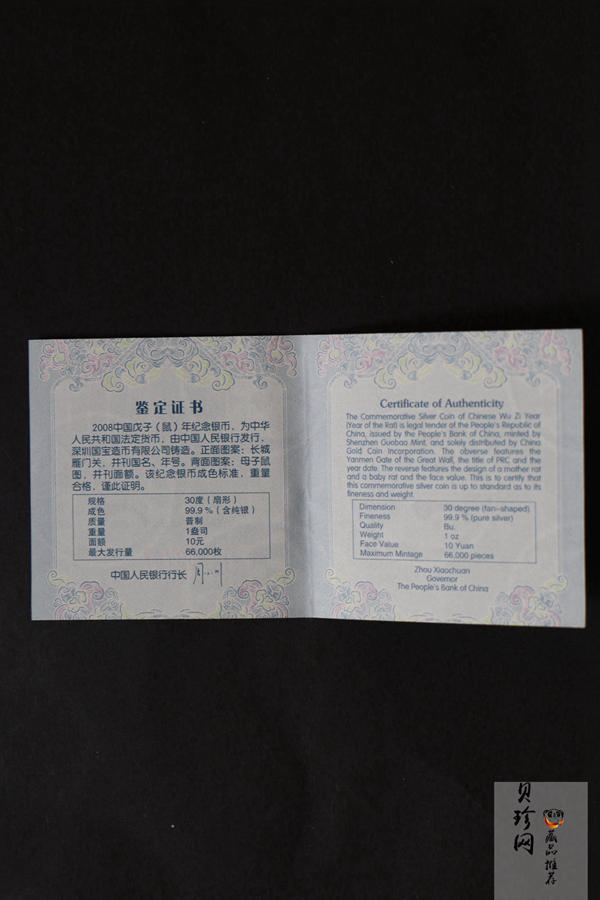 鉴定证书
2008中国戊子（鼠）年纪念银币，为中华
人民共和国法定货币，由中国人民银行发行，
深圳国宝造币有限公司铸造。正面图案：长城
雁门关，并刊国名、年号。背面图案：母子鼠
图，并刊面额。该纪念银币成色标准，重量
合格，谨此证明。
规格 30度（扇形）
成色 99.9％（含纯银）
质量 普制
重量 1盎司
面额 10元
最大发行量 66,000枚
中国人民银行行长
Certificate of Authenticity
The Commemorative Silver Coin of Chinese Wu Zi Year
(Year of the Rat) is legal tender of the People's Republic of
China, issued by the People's Bank of China, minted by
Shenzhen Guobao Mint, and solely distributed by China
Gold Coin Incorporation. The obverse features the
Yanmen Gate of the Great Wall, the title of PRC, and the
year date. The reverse features the design of a mother rat
and a baby rat and the face value. This is to certify that
this commemorative silver coin is up to standard as to its
fineness and weight.
Dimension 30 degree (fan-shaped)
Fineness 99.9 % (pure silver)
Quality Bu.
Weight 1 oz
Face Value 10 Yuan
Maximum Mintage 66,000 pieces
Zhou Xiaochuan
Governor
The People's Bank of China
贝珍网
藏品推荐